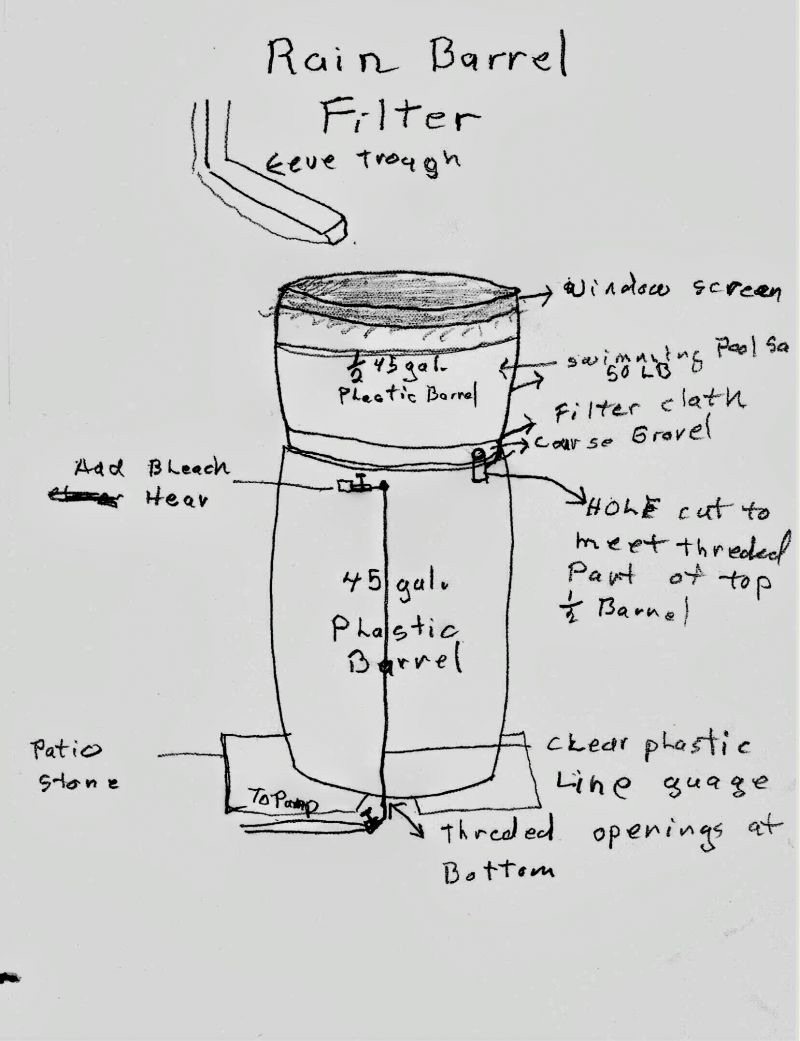 Rain Barrel
Filter
Eeve trough
Window screen
swimming Pool Sa
50 LB
1/2 45 gal.
Plastic Barrel
Filter cloth
Course Gravel
Add Bleach
Hear
HOLE cut to
meet threded
Part of top
1/2 Barrel
45 gal.
Plastic
Barrel
Patio
Stone
Clear plastic
Line guage
To Pump
threded openings at
Bottom